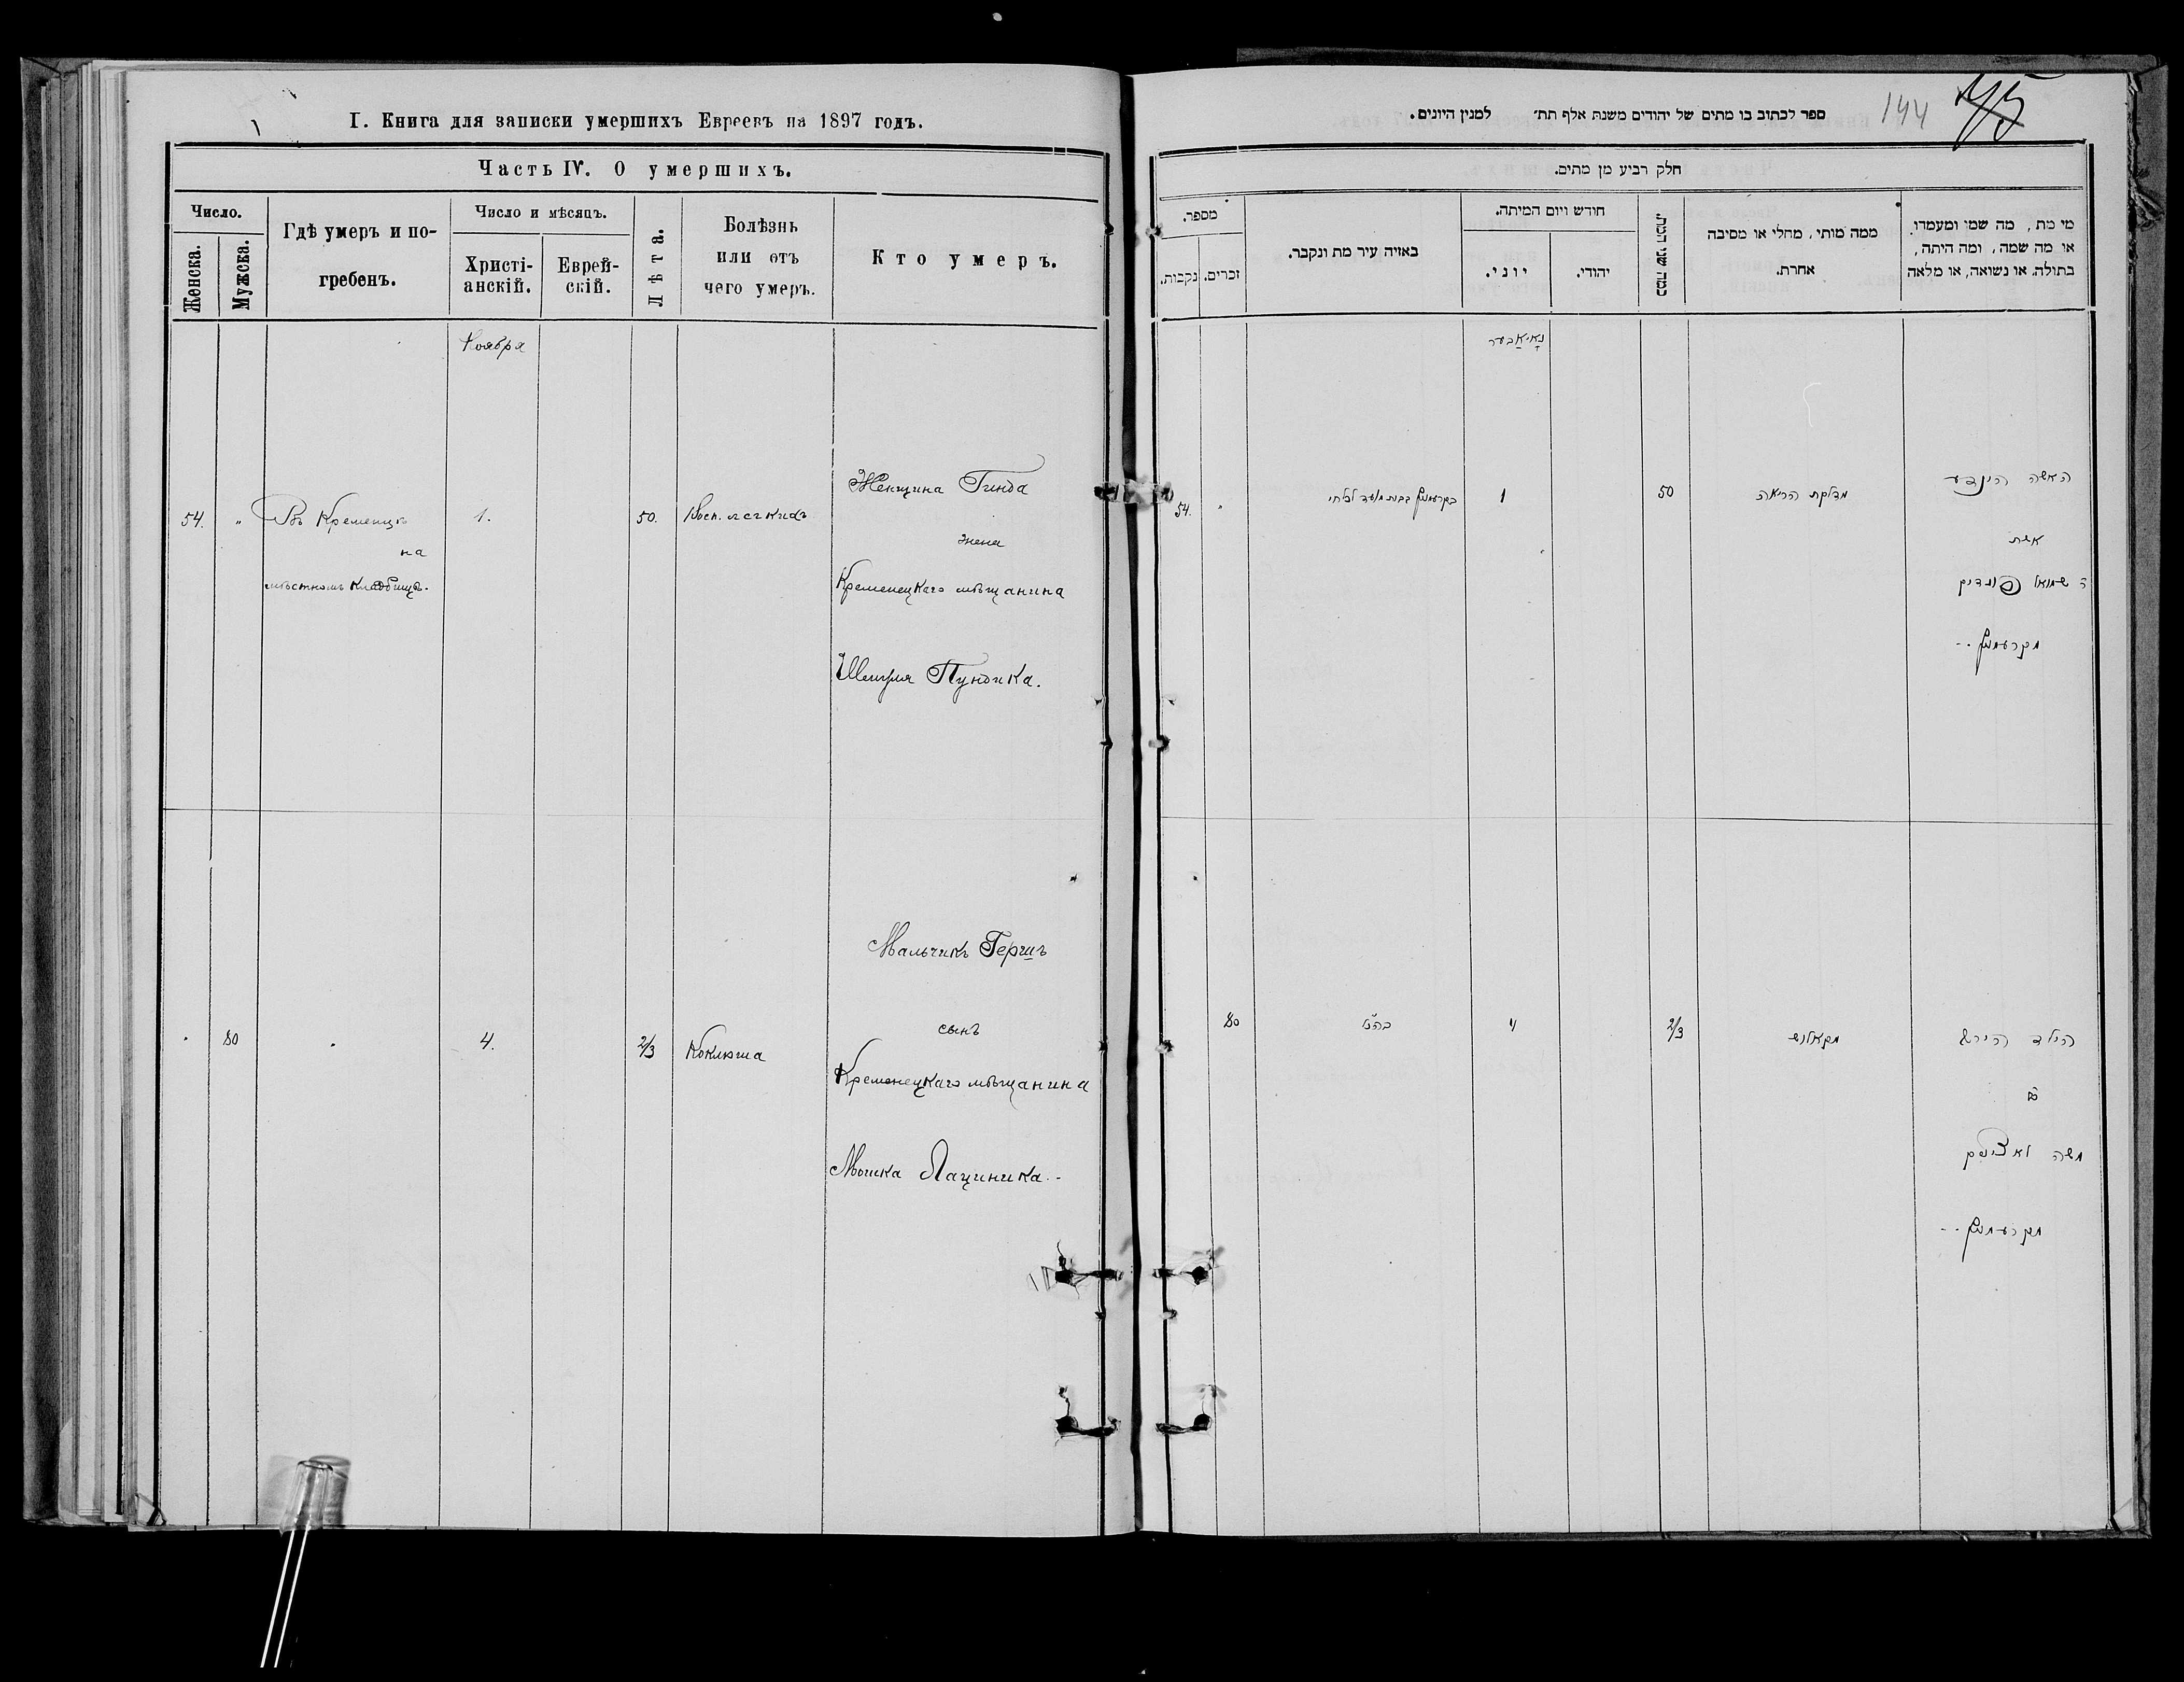 I. Книга для записки умершихъ Евреевъ на 1897 годъ.
Часть IV. О умершихъ.
Число.
Женска.
Мужска.
Гдѣ умеръ и по-
гребенъ.
Число и мѣсяцъ.
Христі-
анскій.
Еврей-
скій.
Лѣта.
Болѣзнь
или отъ
чего умеръ.
Кто умеръ.
Ноября
54.
"
Въ Кременцѣ
на
мѣстномъ кладбищѣ.
1.
50.
Восп. легкихъ
Женщина Гинда
жена
Кременецкаго мѣщанина
Шмуля Пундика.
80
4.
2/3
Коклюша
Мальчикъ Гершъ
сынъ
Кременецкаго мѣщанина
Мошка Лациника.
ספר לכתוב בו מתים של יהודים משנת אלף תת׳ למנין היונים.
144
75
חלק רביע מן מתים.
מספר.
נקבות.
זכרים.
באזיה עיר מת ונקבר.
חודש ויום המיתה.
יוני.
יהודי.
כמה שני המת.
ממה מותי, מחלי או מסיבה
אחרת.
מי מת, מה שמו ומעמדו.
או מה שמה, ומה היתה,
בתולה, או נשואה, או מלאה
נאָיאַבער
54.
"
1
50
מדלקת הריאה
האשה הינדע
אשת
ר שמואל פונדיק
מקרעמניץ
80
4
2/3
מקאלוש
הילד הירש
בן
משה לאציניק
מקרעמניץ